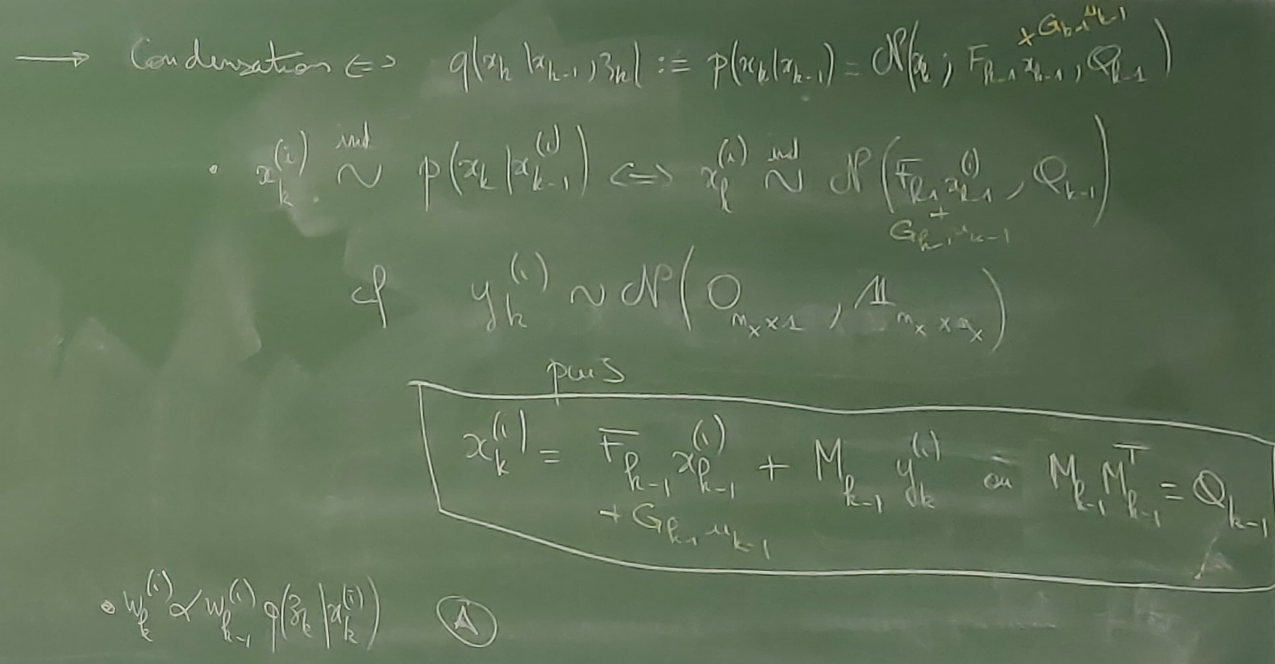 → Condensation ⇔ q(x_k | x_{k-1}, z_k) := p(x_k | x_{k-1}) = N(x_k ; F_{k-1} x_{k-1} + G_{k-1} u_{k-1}, Q_{k-1})
• x_k^{(i)} ind ~ p(x_k | x_{k-1}^{(i)}) ⇔ x_k^{(i)} ind ~ N(F_{k-1} x_{k-1}^{(i)} + G_{k-1} u_{k-1}, Q_{k-1})
y_k^{(i)} ~ N(O_{n_x × 1}, 𝟙_{n_x × n_x})
puis
x_k^{(i)} = F_{k-1} x_{k-1}^{(i)} + G_{k-1} u_{k-1} + M_{k-1} y_k^{(i)} où M_{k-1} M_{k-1}^T = Q_{k-1}
• w_k^{(i)} ∝ w_{k-1}^{(i)} p(z_k | x_k^{(i)}) Ⓐ